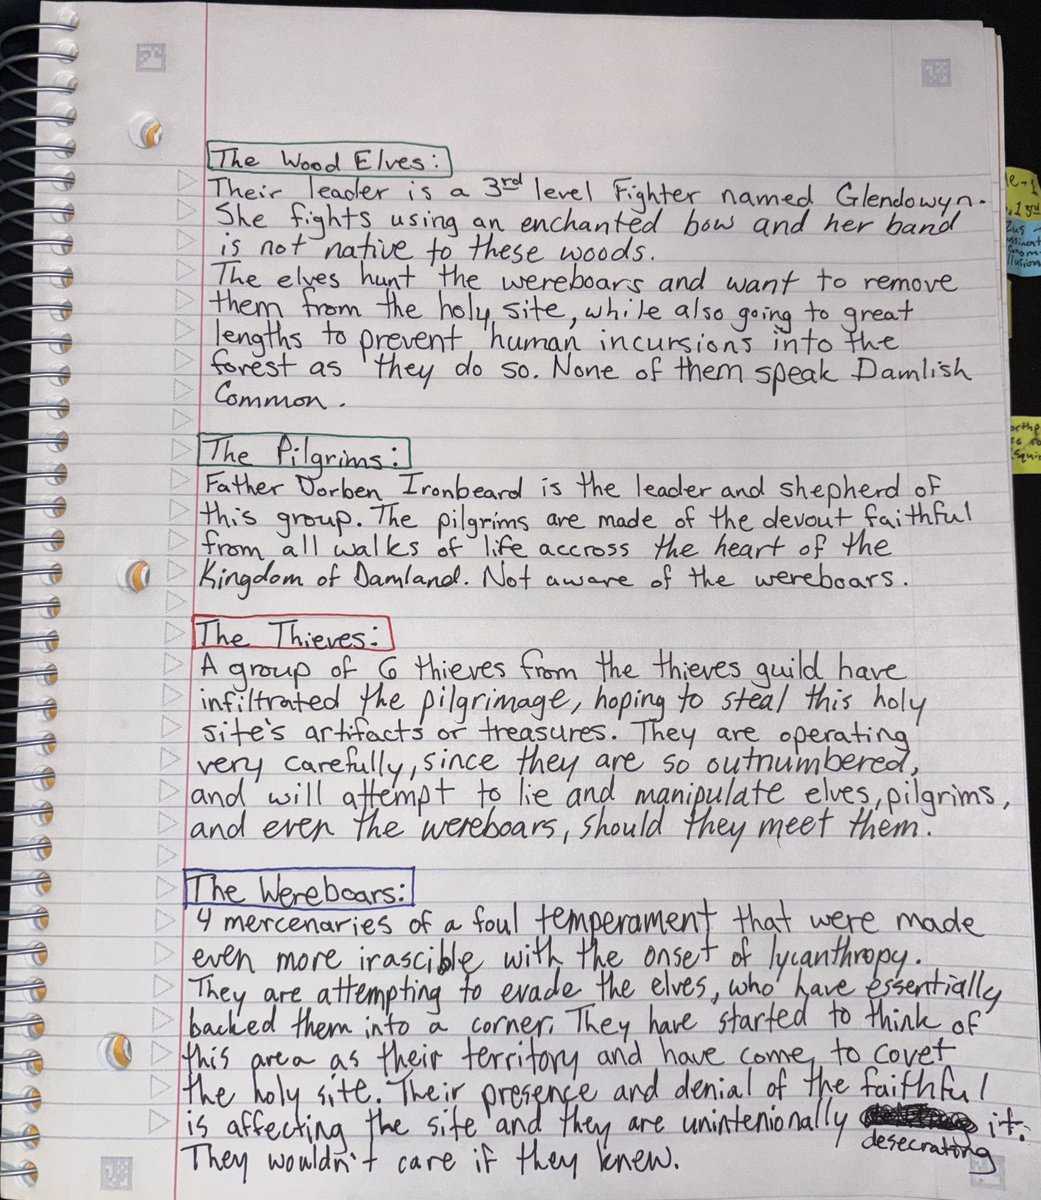 The Wood Elves:
Their leader is a 3rd level Fighter named Glendowyn.
She fights using an enchanted bow and her band
is not native to these woods.
The elves hunt the wereboars and want to remove
them from the holy site, while also going to great
lengths to prevent human incursions into the
forest as they do so. None of them speak Damlish
Common.
The Pilgrims:
Father Dorben Ironbeard is the leader and shepherd of
this group. The pilgrims are made of the devout faithful
from all walks of life accross the heart of the
Kingdom of Damland. Not aware of the wereboars.
The Thieves:
A group of 6 thieves from the thieves guild have
infiltrated the pilgrimage, hoping to steal this holy
site's artifacts or treasures. They are operating
very carefully, since they are so outnumbered,
and will attempt to lie and manipulate elves, pilgrims,
and even the wereboars, should they meet them.
The Wereboars:
4 mercenaries of a foul temperament that were made
even more irascible with the onset of lycanthropy.
They are attempting to evade the elves, who have essentially
backed them into a corner. They have started to think of
this area as their territory and have come to covet
the holy site. Their presence and denial of the faithful
is affecting the site and they are unintenionally it.
desecrating
They wouldn't care if they knew.